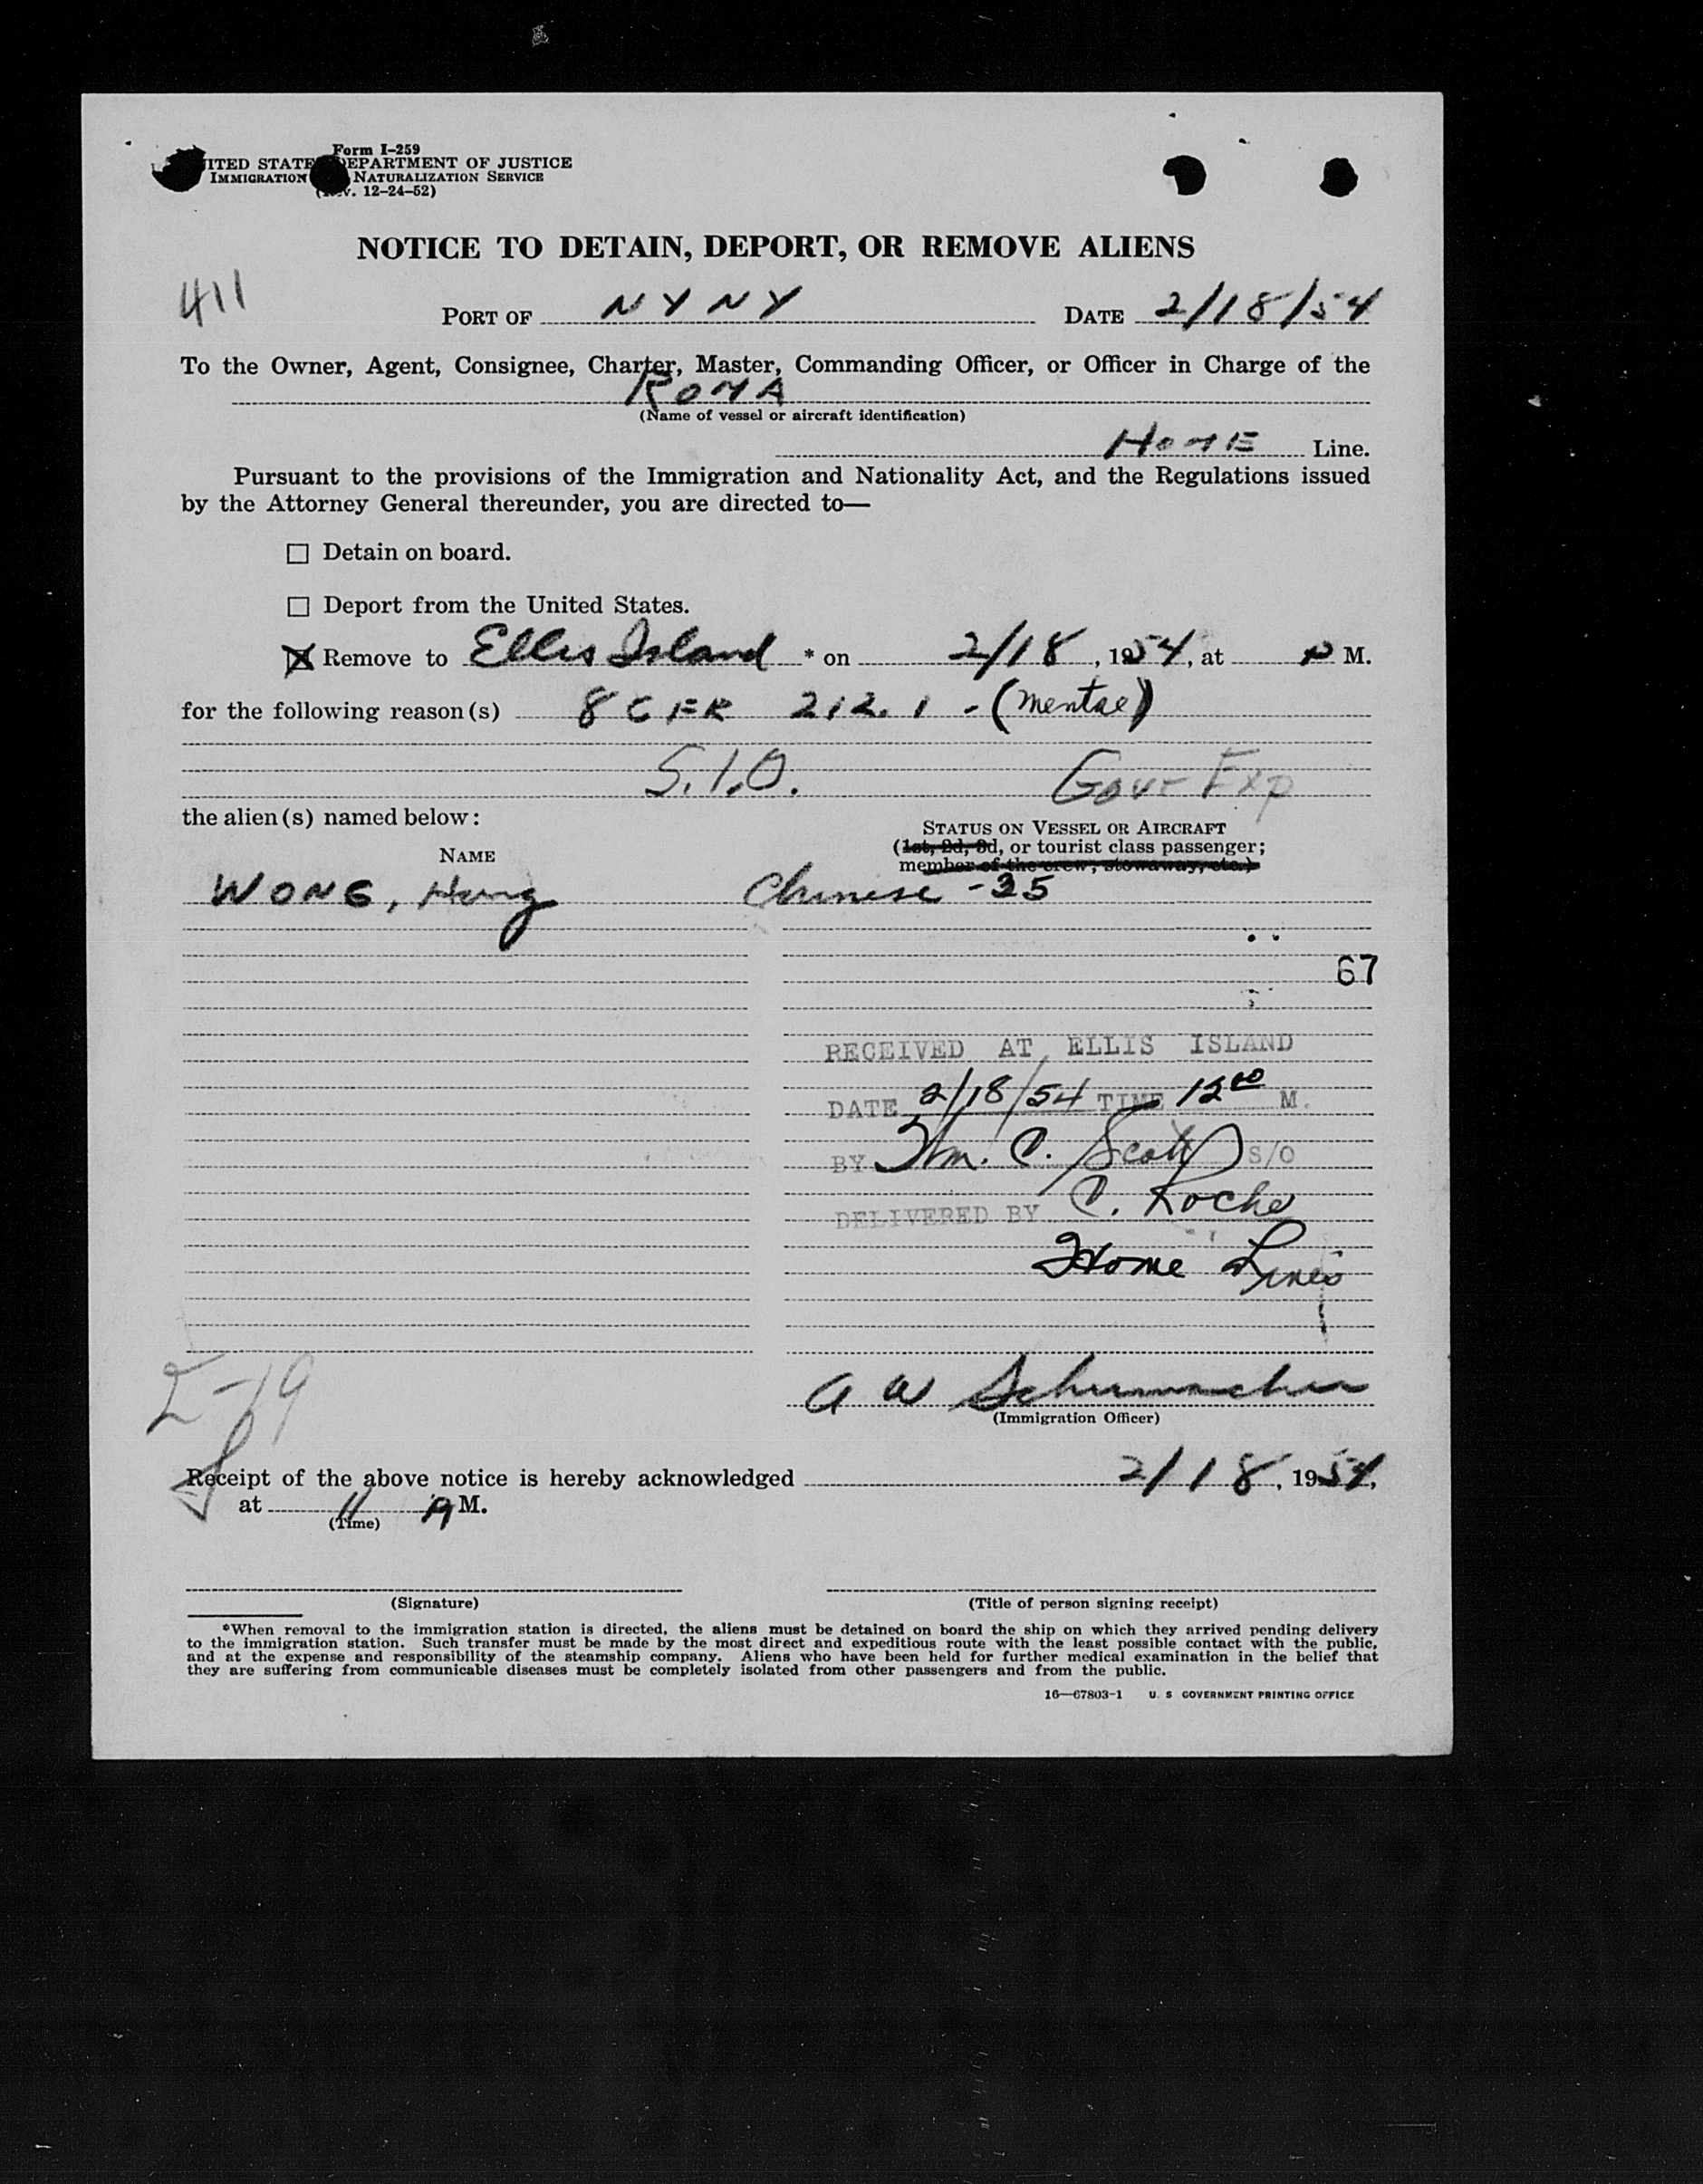 Form I-259
ITED STATE EPARTMENT OF JUSTICE
IMMIGRATION NATURALIZATION SERVICE
v. 12-24-52)
NOTICE TO DETAIN, DEPORT, OR REMOVE ALIENS
411
PORT OF N Y N Y DATE 2/18/54
To the Owner, Agent, Consignee, Charter, Master, Commanding Officer, or Officer in Charge of the
ROMA
(Name of vessel or aircraft identification)
HOME Line.
Pursuant to the provisions of the Immigration and Nationality Act, and the Regulations issued
by the Attorney General thereunder, you are directed to—
☐ Detain on board.
☐ Deport from the United States.
☒ Remove to Ellis Island * on 2/18, 1954, at P M.
for the following reason(s) 8 CFR 212.1 - (mental)
S.I.O. Govt Exp
the alien(s) named below:
STATUS ON VESSEL OR AIRCRAFT
NAME (1st, 2d, 3d, or tourist class passenger;
member of the crew, stowaway, etc.)
WONG, Chinese - 35
67
RECEIVED AT ELLIS ISLAND
DATE 2/18/54 TIME 12 00 M.
BY Wm. C. Scott S/O
DELIVERED BY C. Roche
Home Lines
I-19
A W Schumacher
(Immigration Officer)
Receipt of the above notice is hereby acknowledged 2/18, 1954,
at 11 A M.
(Time)
(Signature) (Title of person signing receipt)
*When removal to the immigration station is directed, the aliens must be detained on board the ship on which they arrived pending delivery
to the immigration station. Such transfer must be made by the most direct and expeditious route with the least possible contact with the public,
and at the expense and responsibility of the steamship company. Aliens who have been held for further medical examination in the belief that
they are suffering from communicable diseases must be completely isolated from other passengers and from the public.
16—67803-1 U. S GOVERNMENT PRINTING OFFICE